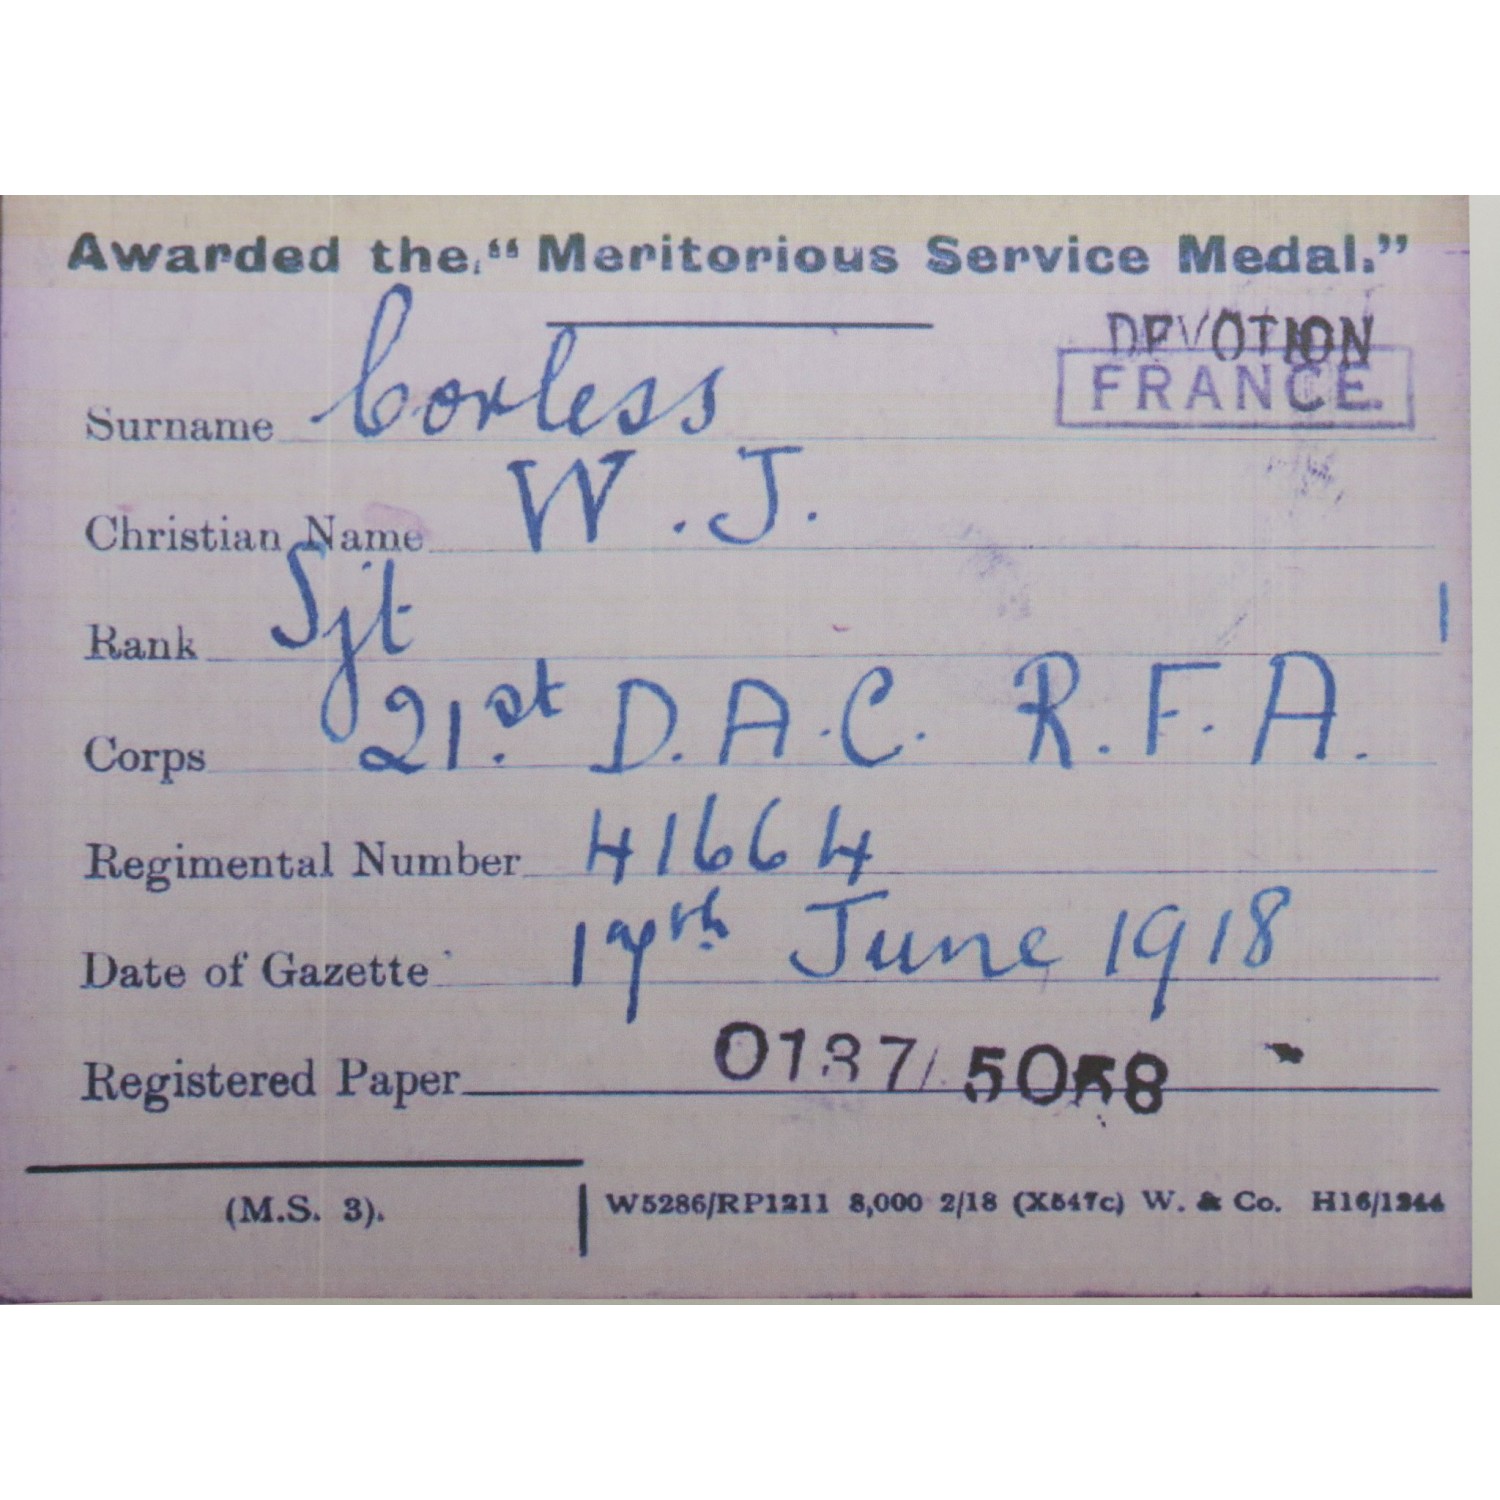 Awarded the "Meritorious Service Medal."
DEVOTION
FRANCE.
Surname Corless
Christian Name W. J.
Rank Sjt
Corps 21.st D.A.C. R.F.A.
Regimental Number 41664
Date of Gazette 17th June 1918
Registered Paper 0137/5058
(M.S. 3).
W5286/RP1211 8,000 2/18 (X547c) W. & Co. H16/1244